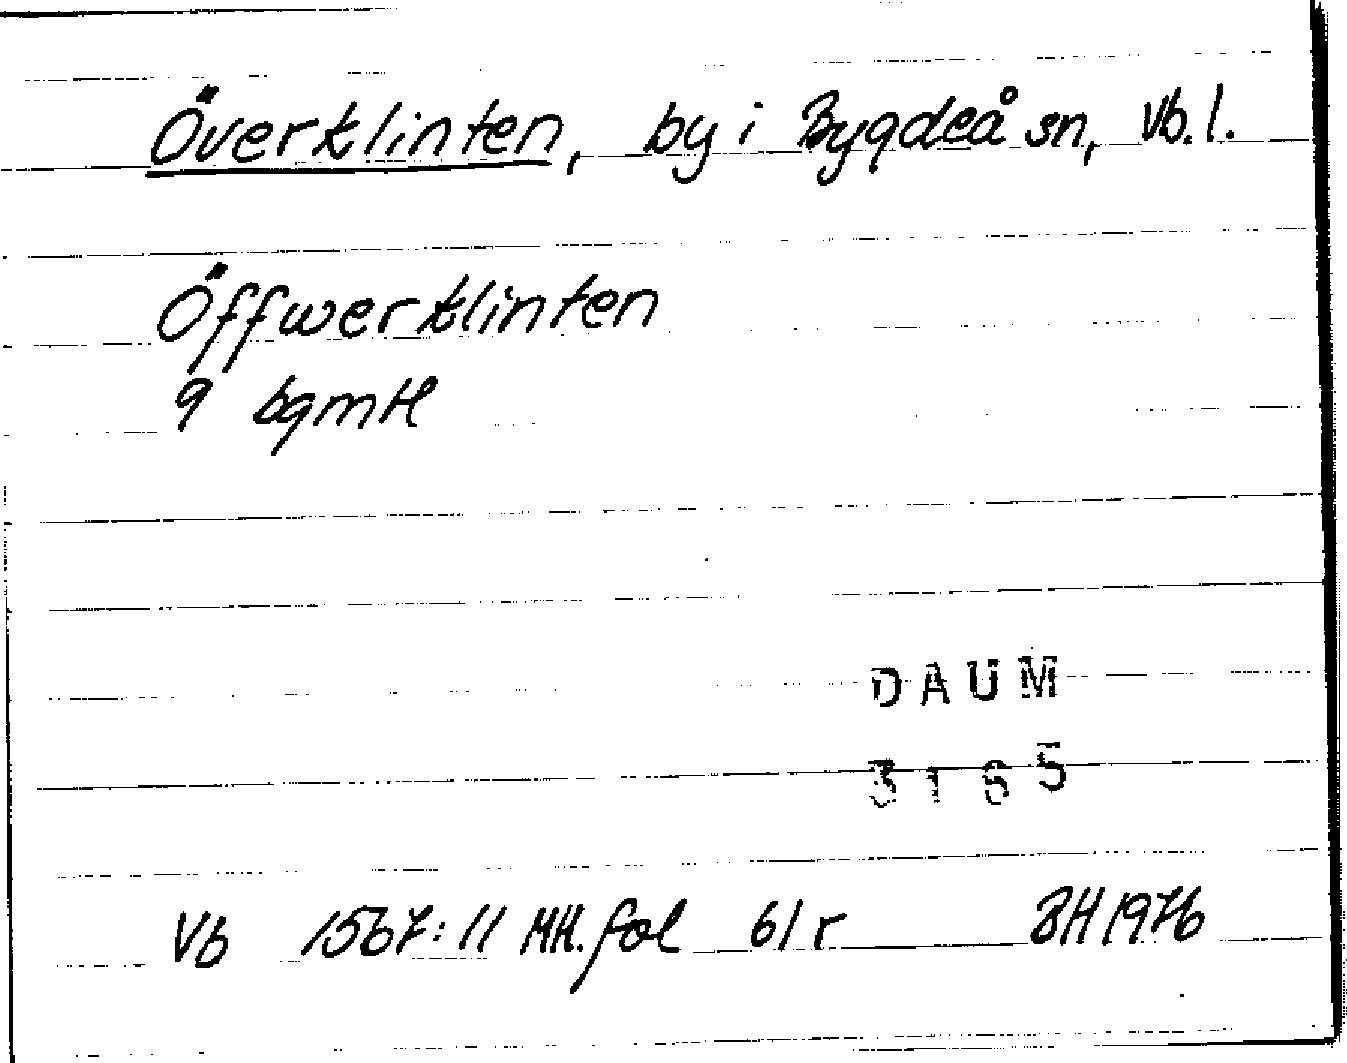 Överklinten, by i Bygdeå sn, Vb.l.
Öffwerklinten
9 bgmtl
DAUM
3165
Vb 1567:11 MH. fol 61r BH 1976